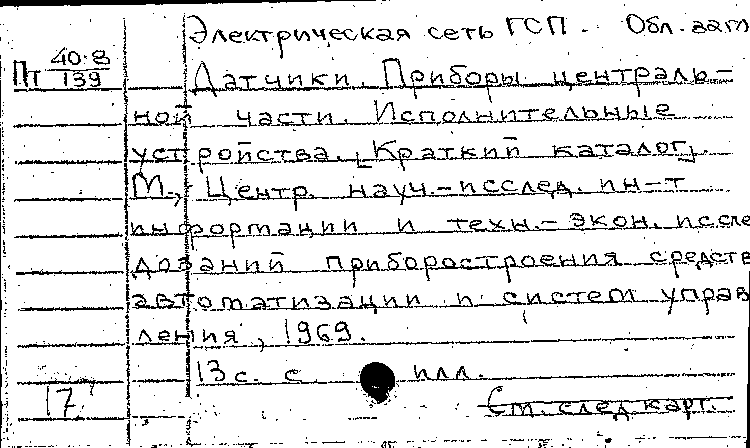 Электрическая сеть ГСП. Обл. загл
40-8
Пт 139
Датчики. Приборы централь-
ной части. Исполнительные
устройства. [Краткий каталог].
М., Центр. науч.-исслед. ин-т
информации и техн.-экон. иссле
дований приборостроения средств
автоматизации и систем управ
ления, 1969.
13 с. с илл.
17
См. след карт.